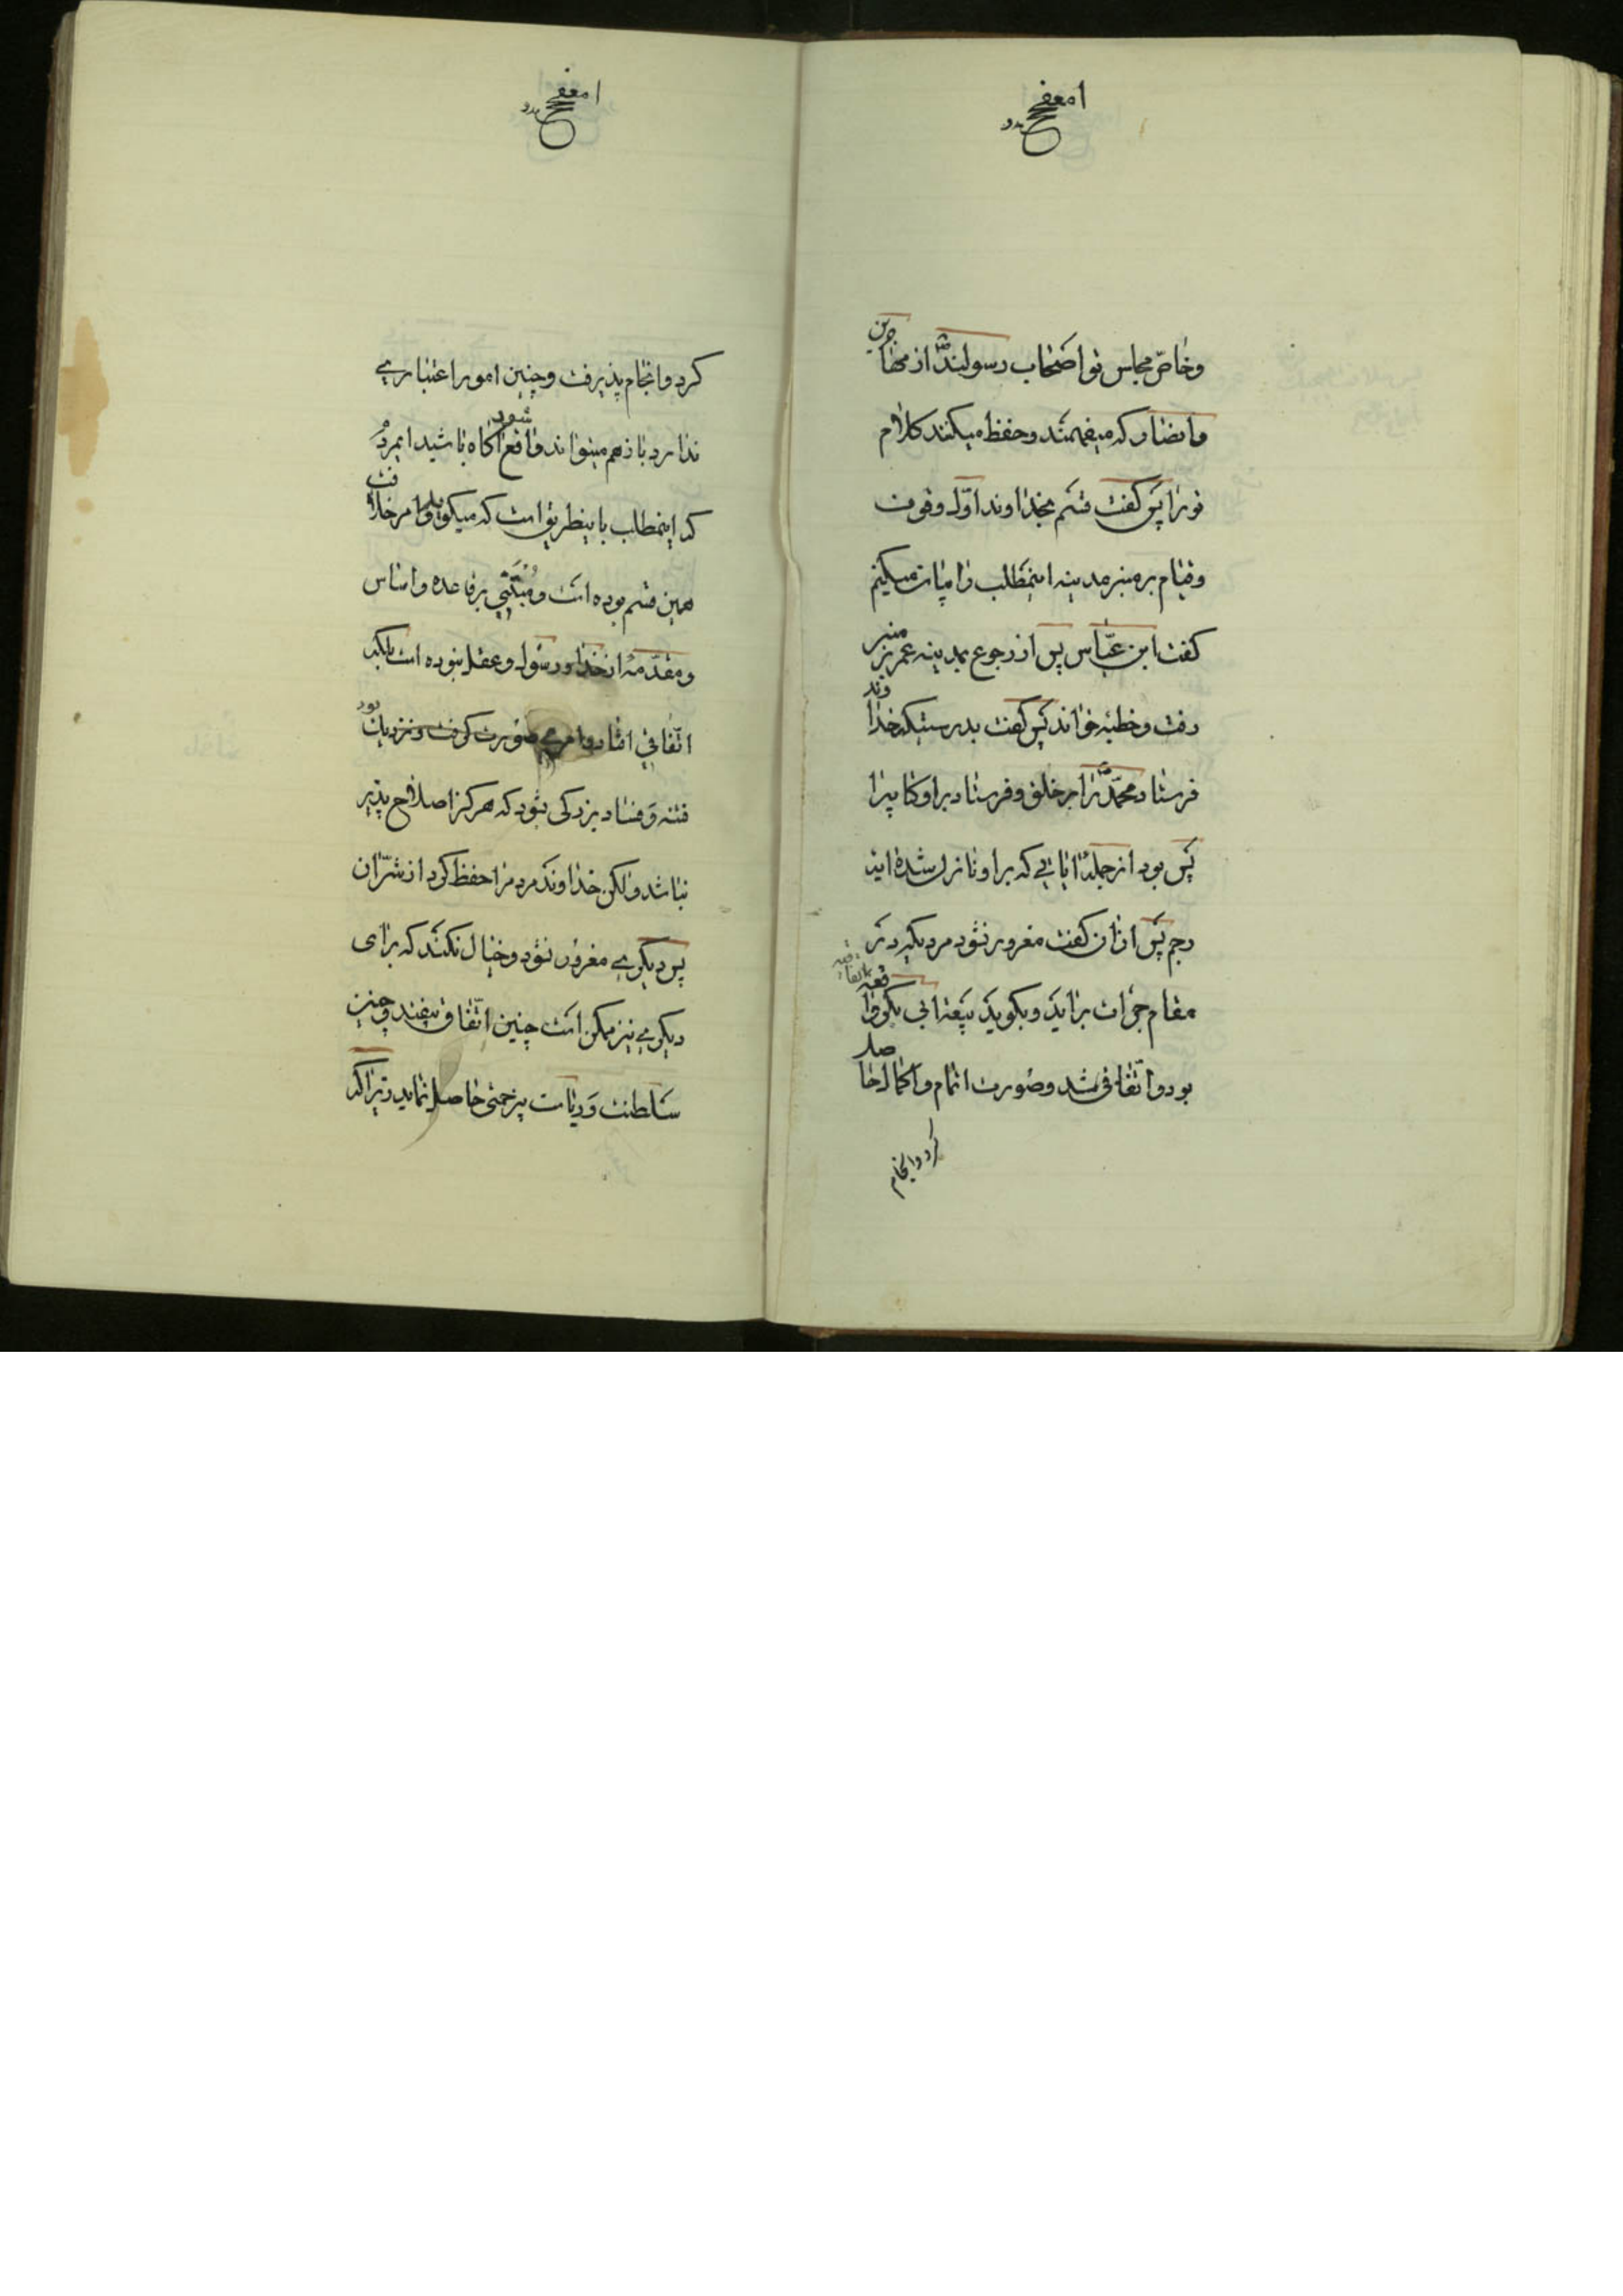 وخاصّ مجلس تو اصحاب رسولندؐ از مهاجرین
وانصار که میفهمند وحفظ میکنند کلام
تورا پس گفت قسم بخداوند اوّل وقوف
وقیام بر منبر مدینه اینمطلب را بیان میکنم
گفت ابن عبّاس پس از رجوع بمدینه عمر بر منبر
رفت وخطبه خواند پس گفت بدرستیکه خداوند
فرستاد محمّدؐ را بر خلق وفرستاد بر او کتابیرا
پس بود از جملهٔ ایاتی که بر او نازل شده ایهٔ
رجم پس از ان گفت مغرور نشود مردیکه در
مقام جرأت براید وبگوید بیعة ابی بکر واقعه
بود واتّفاقی شد وصورت اتمام واکمال حاصل
کرد وانجام
کرد وانجام پذیرفت وچنین امور اعتباری
ندارد باز هم میتواند واقع شود اکاه باشید ایمردم
که اینمطلب باینطریق است که میکویند وامر خلافت
همین قسم بوده است ومبتنی بر قاعده واساس
ومقدّمهٔ از خدا ورسول وعقل نبوده است بلکه
اتّفاقی افتاد وامری صورت کرفت ونزدیک بود
فتنه وفساد بزرکی شود که هرکز اصلاح پذیر
نباشد ولکن خداوند مردمرا حفظ کرد از شرّ ان
پس دیکری مغرور نشود وخیال نکند که برای
دیکری نیز ممکن است چنین اتّفاق بیفتد وچنین
سلطنت وریاست بیزحمتی حاصل نماید زیرا که